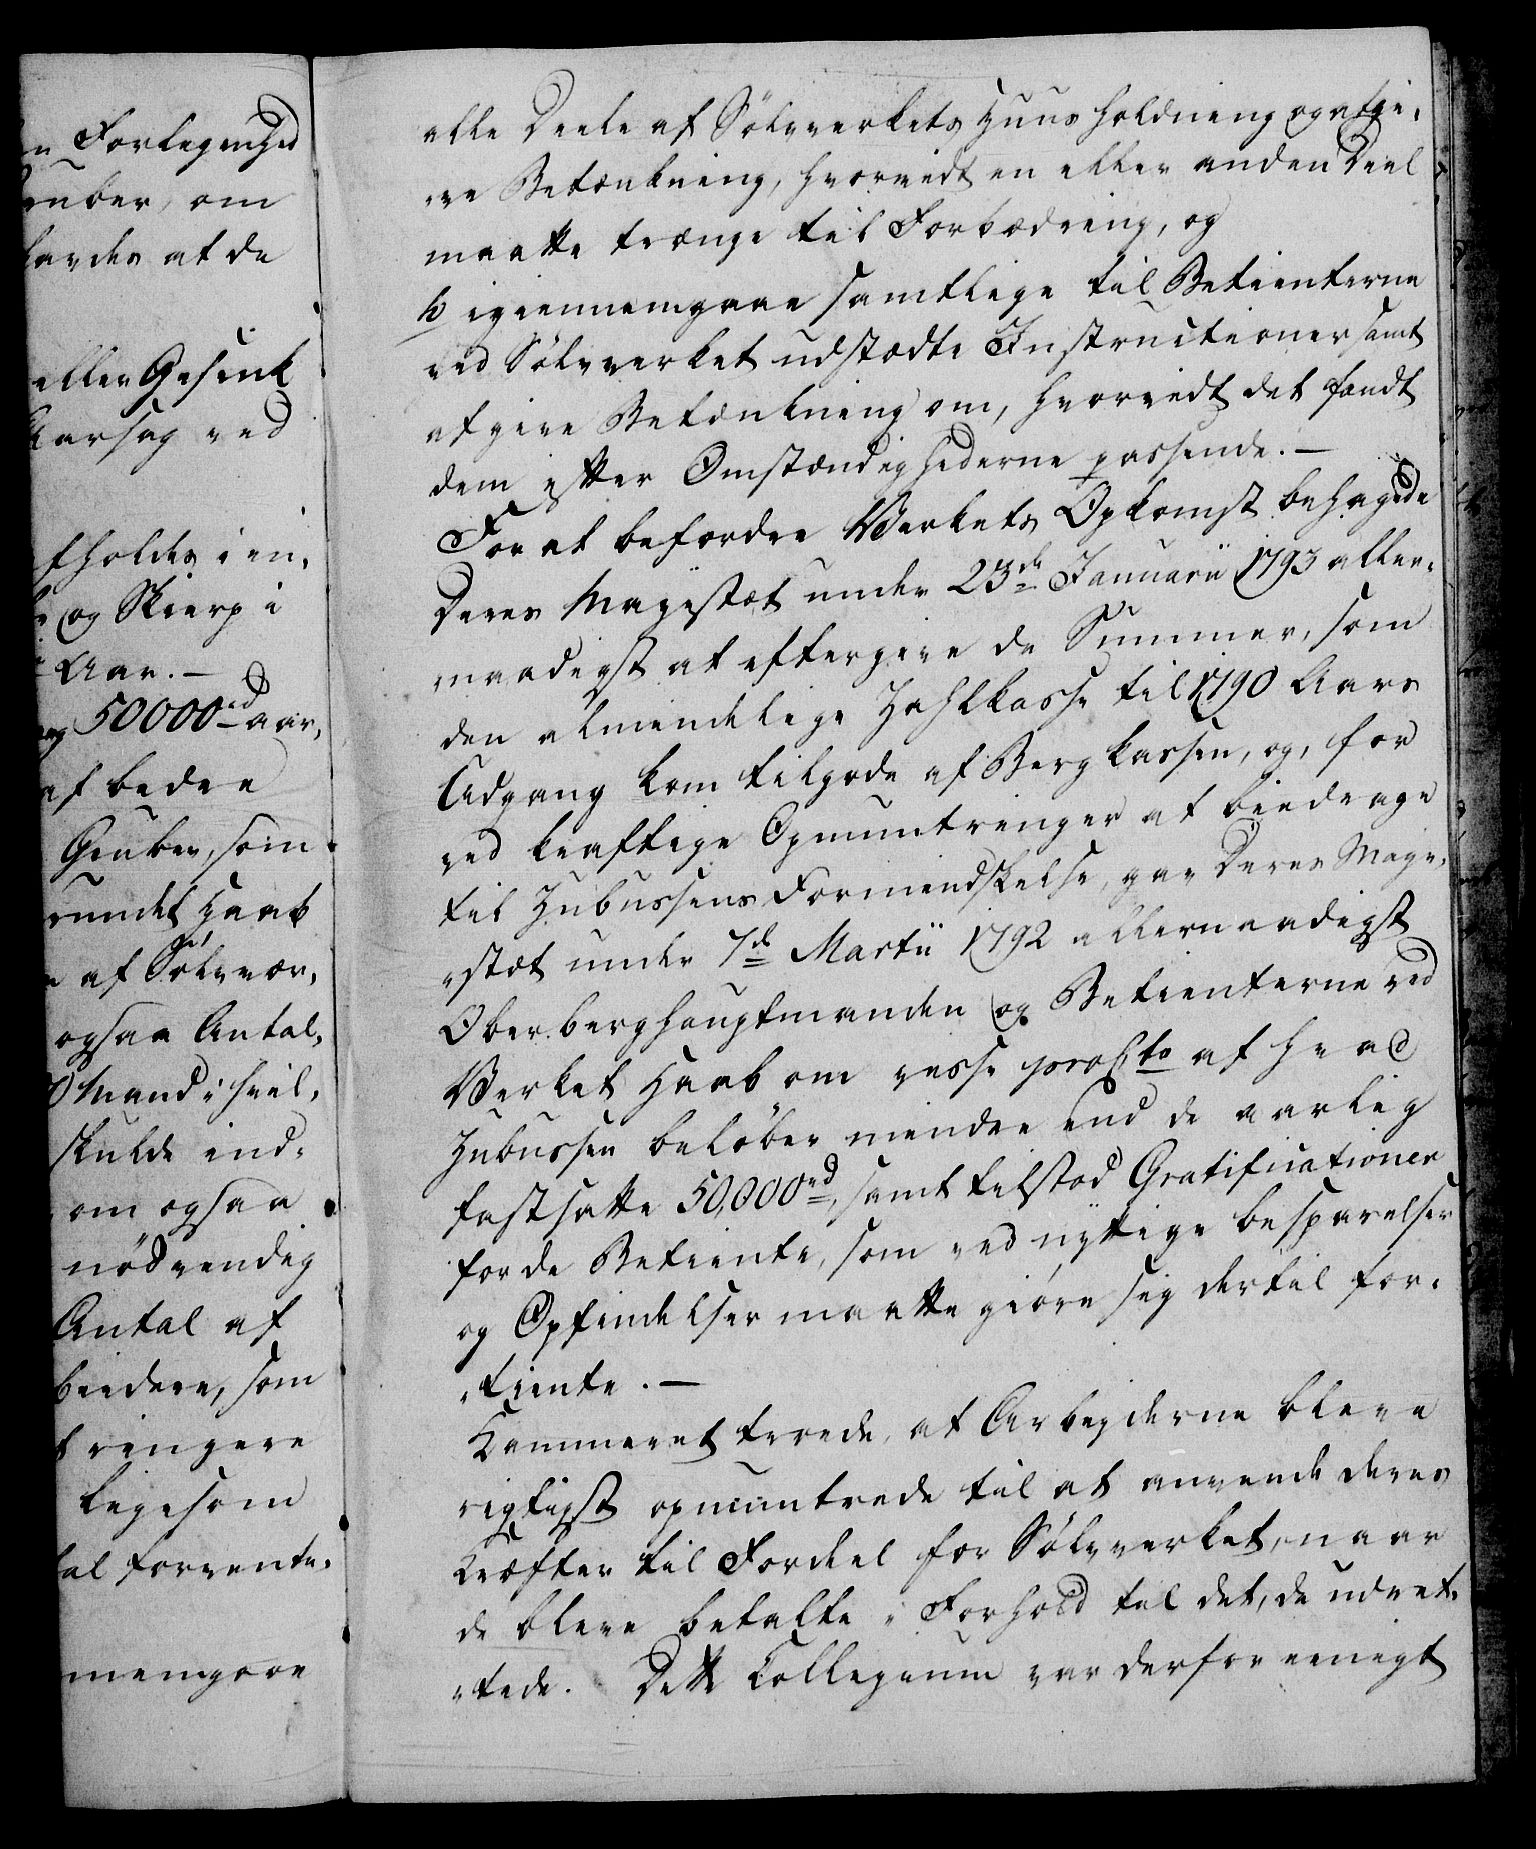 n Forlegenhed
ruber, om
havdes at de
eller Gesenk
Aarsag ved
fholdes i en,
og Skierp i
Aar. –
50000 rd aar,
af bedre
Gruber, som
rundet Haab
af Sölvvær,
ogsaa Antal,
Mand i heel,
skulde ind,
om ogsaa
nödvendig
Antal af
beidere, som
t ringere
ligesom
tal forvente,
mengøre
alle Deele af Sölvverkets Huusholdning og afgi,
,ve Betænkning, hvorvidt en eller anden Deel
maatte trænge til Forbædring, og
h, igiennemgaae samtlige til Betienterne
ved Sölvverket udstædte Instructioner samt
afgive Betænkning om, hvorvidt det fandt
dem efter Omstændighederne passende. –
For at befordre Verkets Opkomst behagede
Deres Majestæt under 23de Januarii 1793 aller,
,naadigst at eftergive de Summer, som
den almindelige Zahlkasse til 1790 Aars
Udgang kom tilgode af Bergkassen, og, for
ved kraftige Opmuntringer at biedrage
til Zubussens Formindskelse, gav Deres Maje,
,stæt under 7d Martii 1792 allernaadigst
Oberberghauptmanden og Betienterne ved
Verket Haab om visse pro Cto af hvad
Zubussen belöber mindre end de aarlig
fastsatte 50,000 rd, samt tilstod Gratificationer
for de Betiente, som ved nyttige besparelser
og Opfindelser maatte giöre sig dertil for,
,tiente. –
Kammeret troede, at Arbejderne bleve
rigtigst opmuntrede til at anvende deres
Kræfter til Fordeel for Sölvverket, naar
de bleve betalte i Forhold til det, de udret,
,tede. Dette Collegium var derfor eenigt